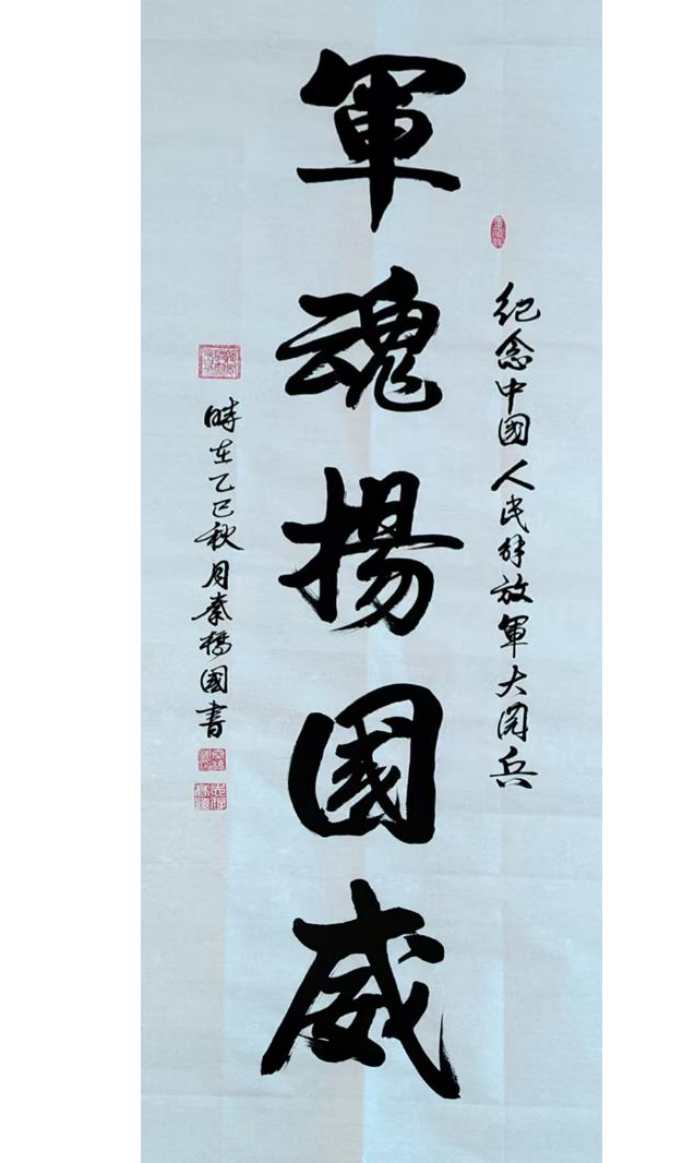 紀念中國人民解放軍大閱兵
軍魂揚國威
時在乙巳秋月秦楊國書